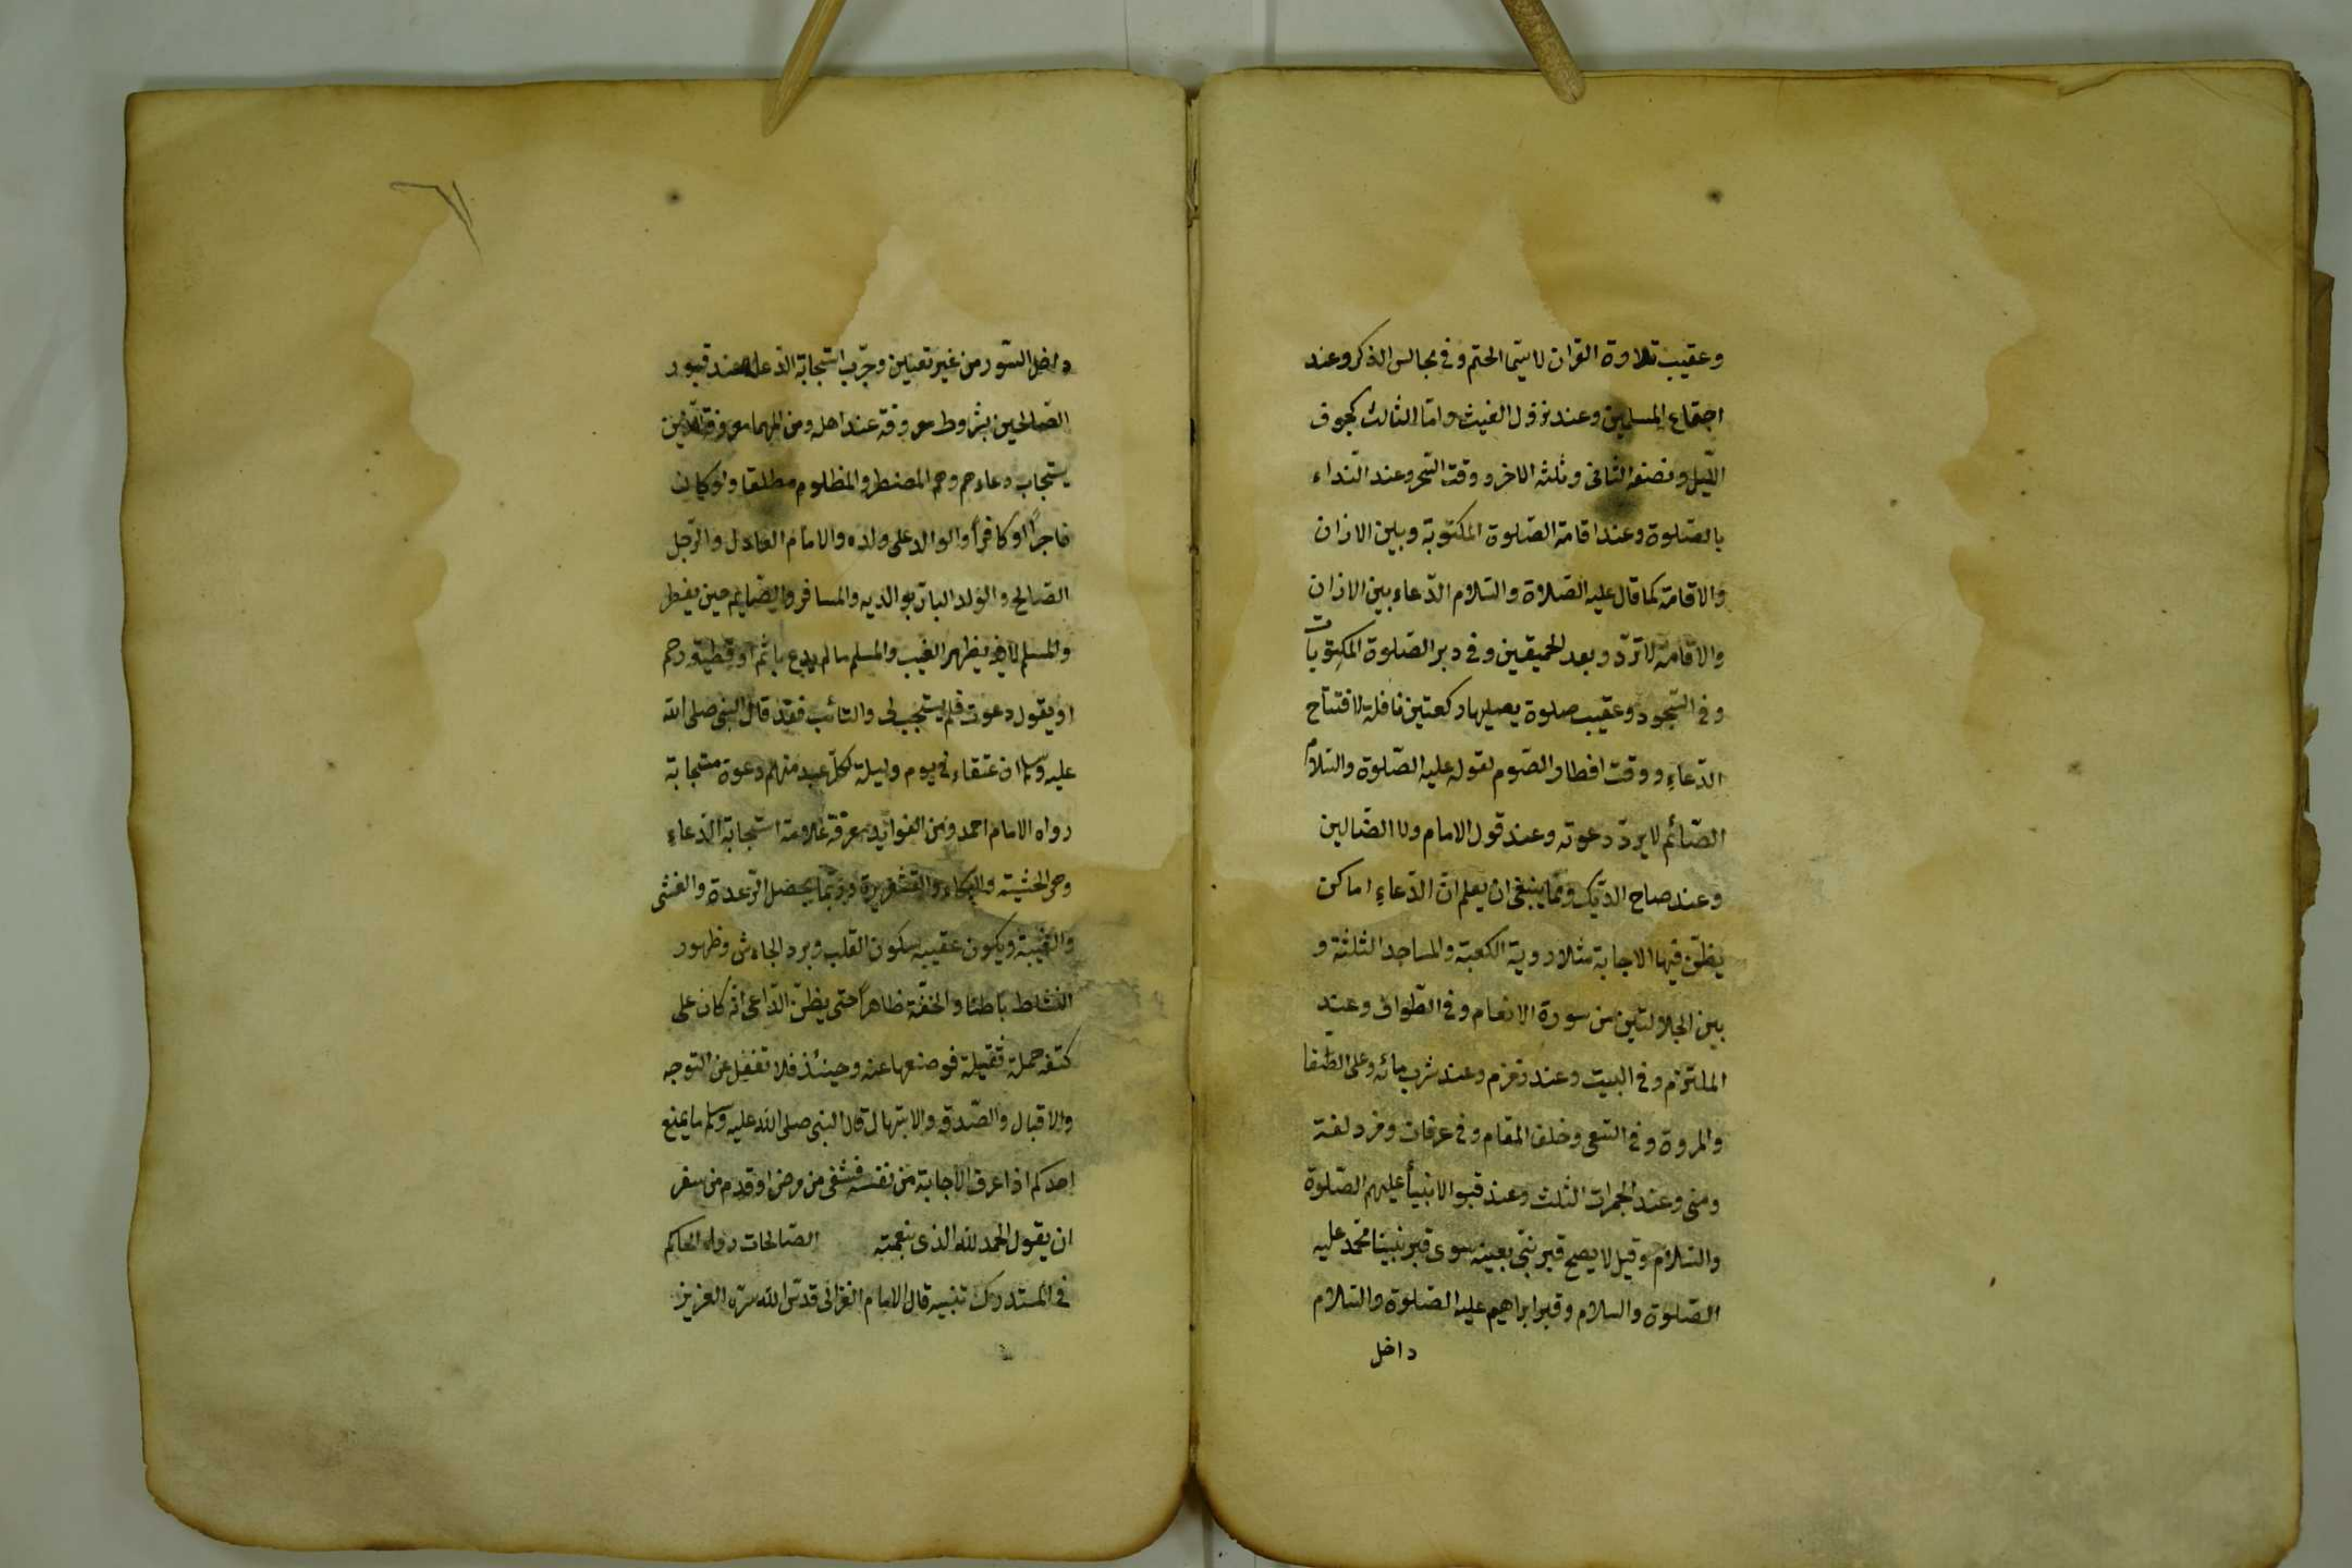 وعقيب تلاوة القران لا سيّما الختم وفي مجالس الذكر وعند
اجتماع المسلمين وعند نزول الغيث وامّا الثالث كجوف
اللّيل ونصفه الثاني وثلثه الاخر ووقت السّحر وعند النّداء
بالصّلوة وعند اقامة الصّلوة المكتوبة وبين الاذان
والاقامة كما قال عليه الصّلاة والسّلام الدّعاء بين الاذان
والاقامة لا تردّ وبعد الحيعلتين وفي دبر الصّلوة المكتوبات
وفي السّجود وعقيب صلوة يصليها ركعتين نافلة لافتتاح
الدّعاء ووقت افطار الصّوم لقوله عليه الصّلوة والسّلام
الصّائم لا يردّ دعوته وعند قول الامام ولا الضّالين
وعند صياح الدّيك وممّا ينبغي ان يعلم انّ الدّعاء اماكن
يظنّ فيها الاجابة مثلا روية الكعبة والمساجد الثلثة و
بين الجلالتين من سورة الانعام وفي الطّواف وعند
الملتزم وفي البيت وعند زمزم وعند شرب مائه وعلى الصّفا
والمروة وفي السّعي وخلف المقام وفي عرفات ومزدلفة
ومنى وعند الجمرات الثلث وعند قبور الانبيأ عليهم الصّلوة
والسّلام وقيل لا يصح قبر نبيّ بعينه سوى قبر نبيّنا محمّد عليه
الصّلوة والسلام وقبر ابراهيم عليه الصّلوة والسّلام
داخل
داخل السّور من غير تعيين وجرّب استجابة الدّعاء عند قبور
الصّالحين بشروط معروفة عند اهله ومن المهمّات معرفة الّذين
يستجاب دعاءهم وهم المضطر والمظلوم مطلقا ولو كان
فاجرًا او كافرًا والوالد على ولده والامام العادل والرّجل
الصّالح والولد البارّ بوالديه والمسافر والصّايم حين يفطر
والمسلم لاخيه بظهر الغيب والمسلم ما لم يدع باثم او قطيعة رحم
او يقول دعوت فلم يستجب لي والتائب فقد قال النبي صلى الله
عليه وسلم ان عتقاء في يوم وليلة لكلّ عبد منهم دعوة مستجابة
رواه الامام احمد ومن الفوائد معرفة علامة استجابة الدّعاء
وهى الخشية والبكاء والقشعريرة وربّما يحصل الرّعدة والغشى
والغيبة ويكون عقيبه سكون القلب وبرد الجاءش وظهور
النشاط باطنا والخفّة ظاهرًا حتى يظنّ الدّاعى انّه كان على
كتفه حملة ثقيلة فوضعها عنه وحينئذ فلا تغفل عن التوجه
والاقبال والصّدق والابتهال قال النبى صلى الله عليه وسلم ما يمنع
احدكم اذا عرف الاجابة من نفسه فشفى من مرض او قدم من سفر
ان يقول الحمد لله الذى بنعمته الصّالحات رواه الحاكم
في المستدرك تنبيه قال الامام الغزالى قدّس الله سرّه العزيز